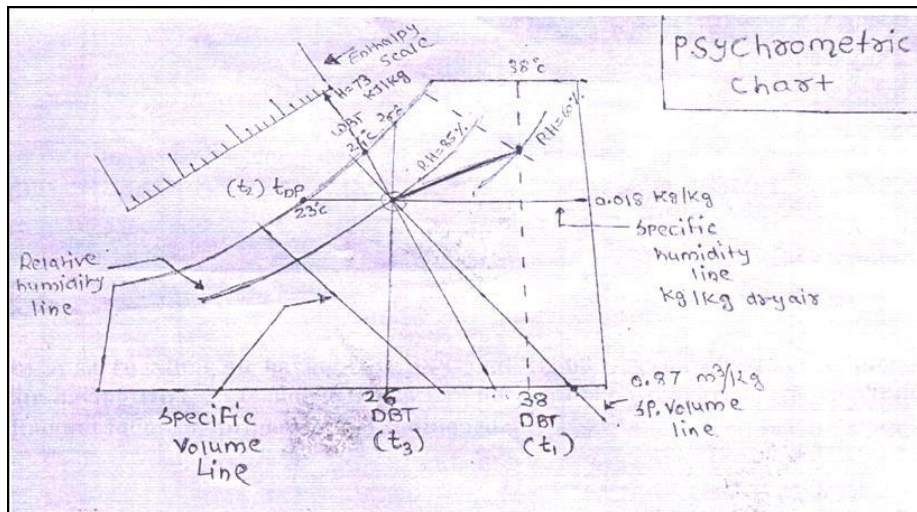 Psychrometric
Chart
Enthalpy
Scale
H=73
kJ/kg
38°c
WBT
24°c
26°c
RH=85%
RH=60%
(t₂) t_DP
23°c
0.018 kg/kg
Specific
humidity
line
kg/kg dryair
Relative
humidity
line
0.87 m³/kg
SP. Volume
line
26
DBT
(t₃)
38
DBT
(t₁)
Specific
Volume
Line